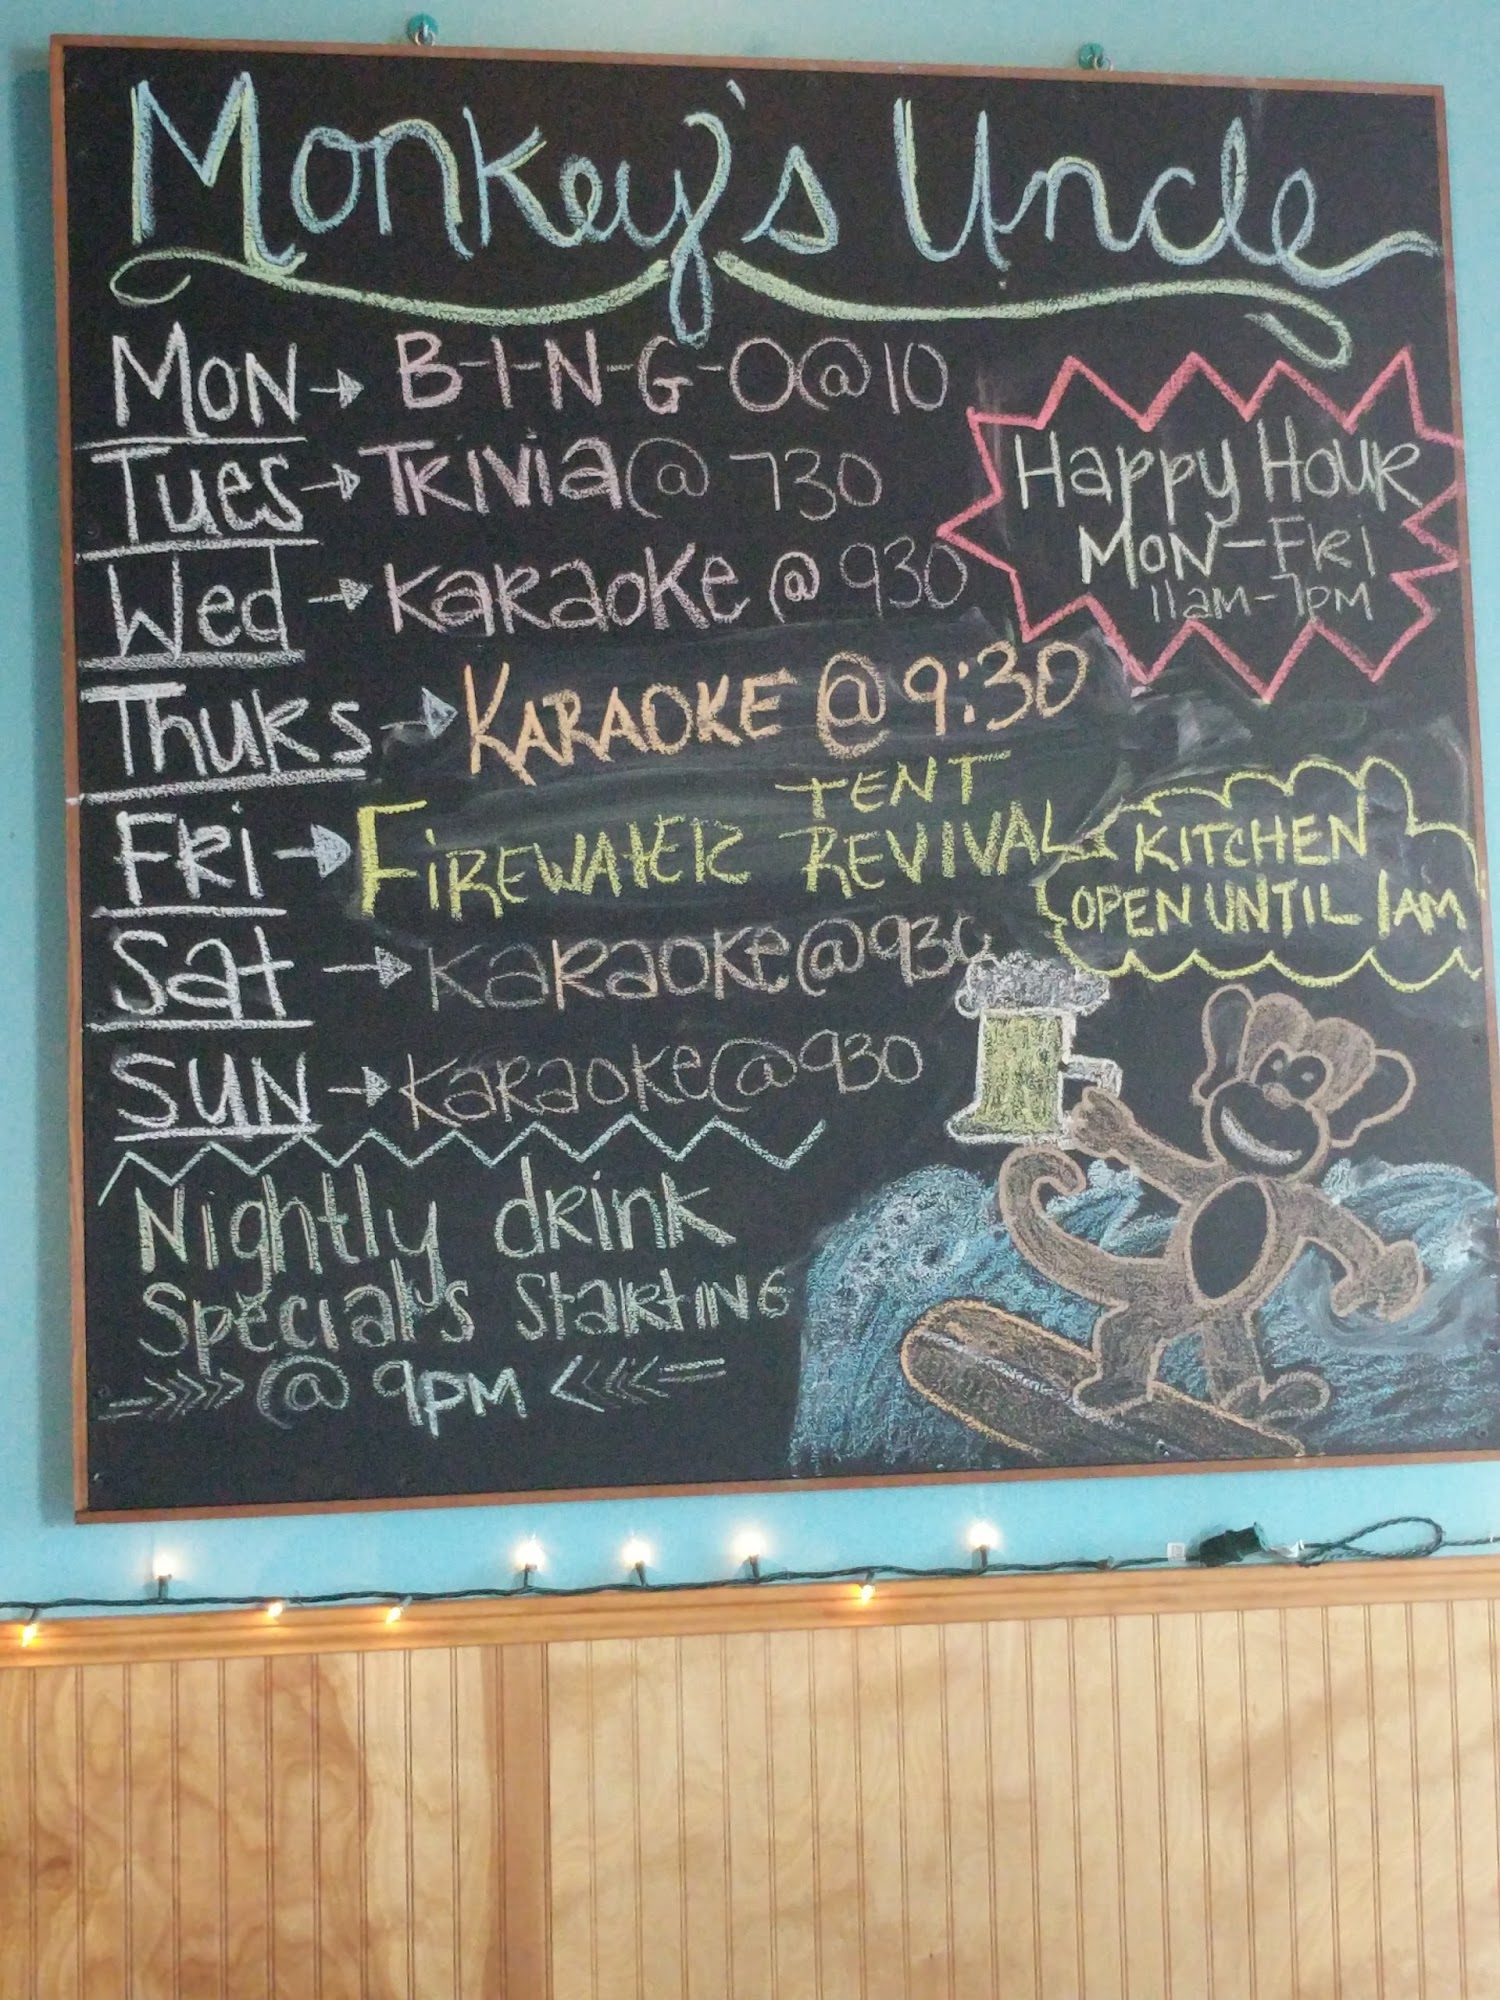 Monkey's Uncle
MON → B-I-N-G-O @ 10
Tues → TRIVIA @ 730
Wed → KaRaoKe @ 930
ThuRs → KARAOKE @ 9:30
FRi → FiREWATER TENT REVIVAL
Sat → KaRaoKe @ 930
SUN → KaRaoKe @ 930
Happy HouR
MON-FRI
11am-7pm
KITCHEN
OPEN UNTIL 1AM
Nightly dRink
Specials StaRtING
>>>> @ 9PM <<<<